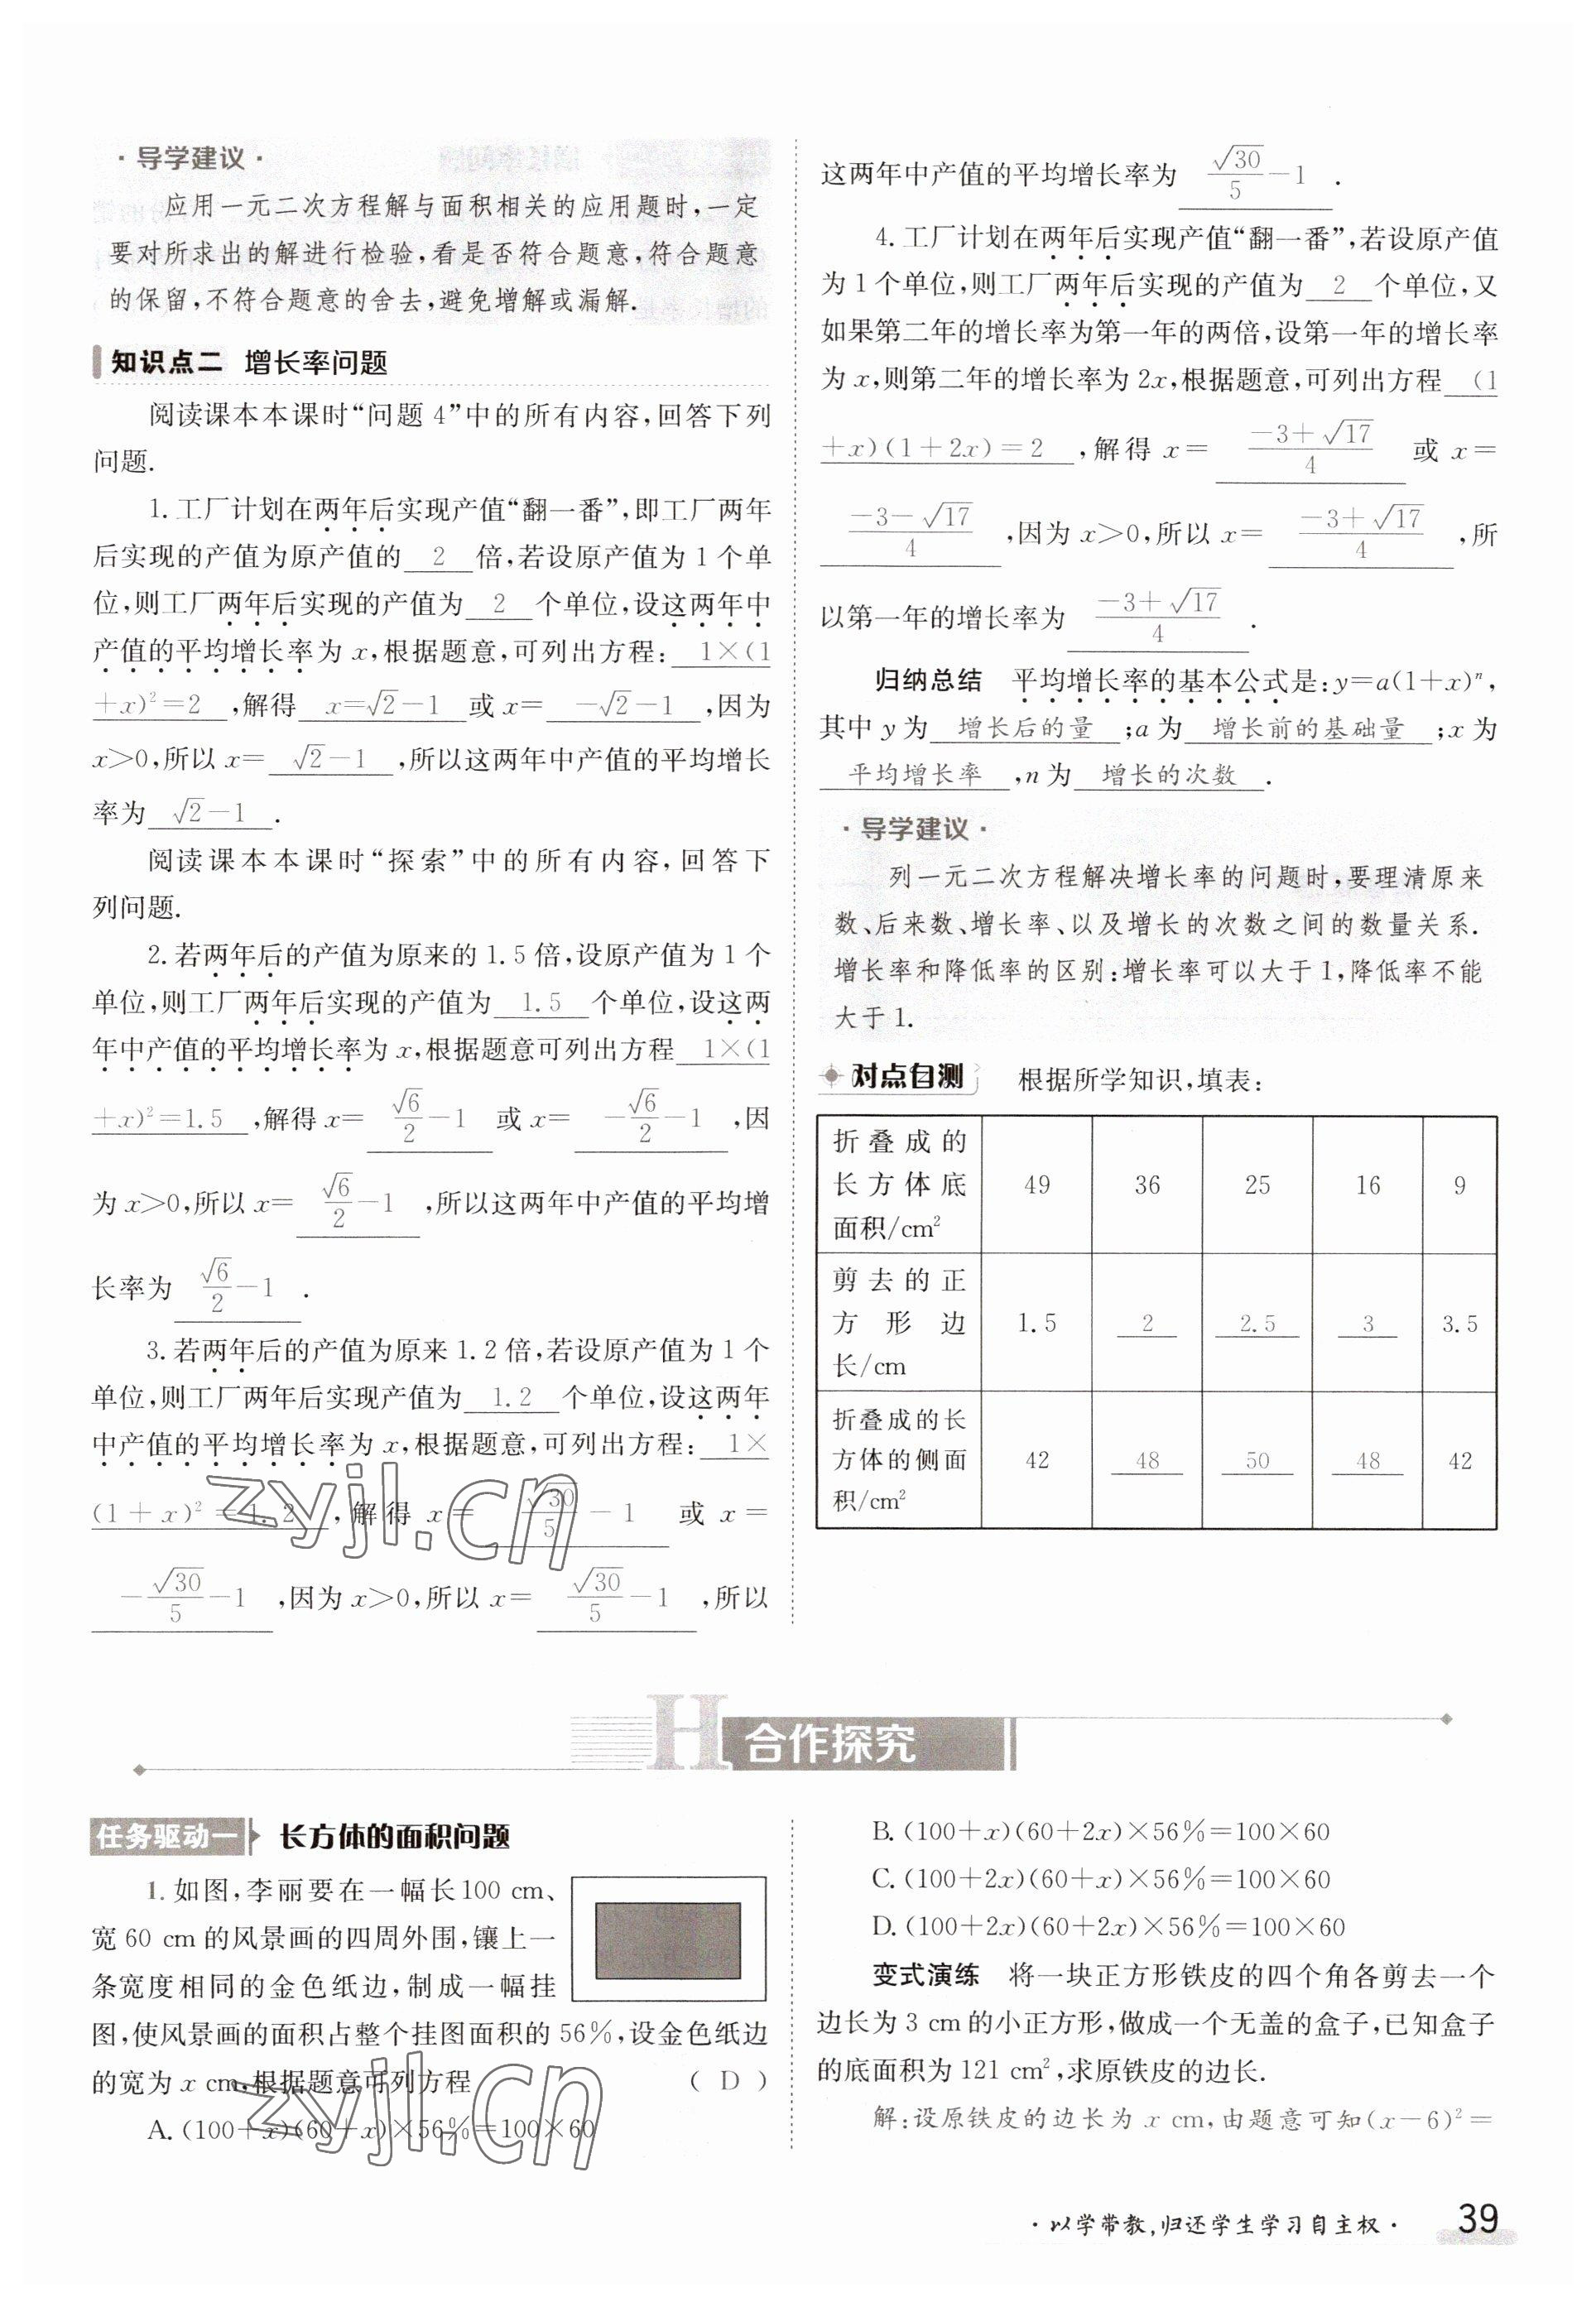 ·导学建议·
应用一元二次方程解与面积相关的应用题时,一定
要对所求出的解进行检验,看是否符合题意,符合题意
的保留,不符合题意的舍去,避免增解或漏解.
知识点二 增长率问题
阅读课本本课时“问题4”中的所有内容,回答下列
问题.
1.工厂计划在两年后实现产值“翻一番”,即工厂两年
后实现的产值为原产值的 2 倍,若设原产值为1个单
位,则工厂两年后实现的产值为 2 个单位,设这两年中
产值的平均增长率为x,根据题意,可列出方程: 1×(1
+x)²=2 ,解得 x=√2−1 或x= −√2−1 ,因为
x>0,所以x= √2−1 ,所以这两年中产值的平均增长
率为 √2−1 .
阅读课本本课时“探索”中的所有内容,回答下
列问题.
2.若两年后的产值为原来的1.5倍,设原产值为1个
单位,则工厂两年后实现的产值为 1.5 个单位,设这两
年中产值的平均增长率为x,根据题意可列出方程 1×(1
+x)²=1.5 ,解得x= √6/2−1 或x= −√6/2−1 ,因
为x>0,所以x= √6/2−1 ,所以这两年中产值的平均增
长率为 √6/2−1 .
3.若两年后的产值为原来1.2倍,若设原产值为1个
单位,则工厂两年后实现产值为 1.2 个单位,设这两年
中产值的平均增长率为x,根据题意,可列出方程: 1×
(1+x)²=1.2 ,解得x= √30/5−1 或x=
−√30/5−1 ,因为x>0,所以x= √30/5−1 ,所以
这两年中产值的平均增长率为 √30/5−1 .
4.工厂计划在两年后实现产值“翻一番”,若设原产值
为1个单位,则工厂两年后实现的产值为 2 个单位,又
如果第二年的增长率为第一年的两倍,设第一年的增长率
为x,则第二年的增长率为2x,根据题意,可列出方程 (1
+x)(1+2x)=2 ,解得x= (−3+√17)/4 或x=
(−3−√17)/4 ,因为x>0,所以x= (−3+√17)/4 ,所
以第一年的增长率为 (−3+√17)/4 .
归纳总结 平均增长率的基本公式是:y=a(1+x)ⁿ,
其中y为 增长后的量 ;a为 增长前的基础量 ;x为
平均增长率 ,n为 增长的次数 .
·导学建议·
列一元二次方程解决增长率的问题时,要理清原来
数、后来数、增长率、以及增长的次数之间的数量关系.
增长率和降低率的区别:增长率可以大于1,降低率不能
大于1.
对点自测 根据所学知识,填表:
折叠成的
长方体底 49 36 25 16 9
面积/cm²
剪去的正
方形边 1.5 2 2.5 3 3.5
长/cm
折叠成的长
方体的侧面 42 48 50 48 42
积/cm²
H 合作探究
任务驱动一 长方体的面积问题
1.如图,李丽要在一幅长100 cm、
宽60 cm的风景画的四周外围,镶上一
条宽度相同的金色纸边,制成一幅挂
图,使风景画的面积占整个挂图面积的56%,设金色纸边
的宽为x cm,根据题意可列方程 ( D )
A.(100+x)(60+x)×56%=100×60
B.(100+x)(60+2x)×56%=100×60
C.(100+2x)(60+x)×56%=100×60
D.(100+2x)(60+2x)×56%=100×60
变式演练 将一块正方形铁皮的四个角各剪去一个
边长为3 cm的小正方形,做成一个无盖的盒子,已知盒子
的底面积为121 cm²,求原铁皮的边长.
解:设原铁皮的边长为x cm,由题意可知(x−6)²=
·以学带教,归还学生学习自主权· 39
zyjl.cn
zyjl.cn